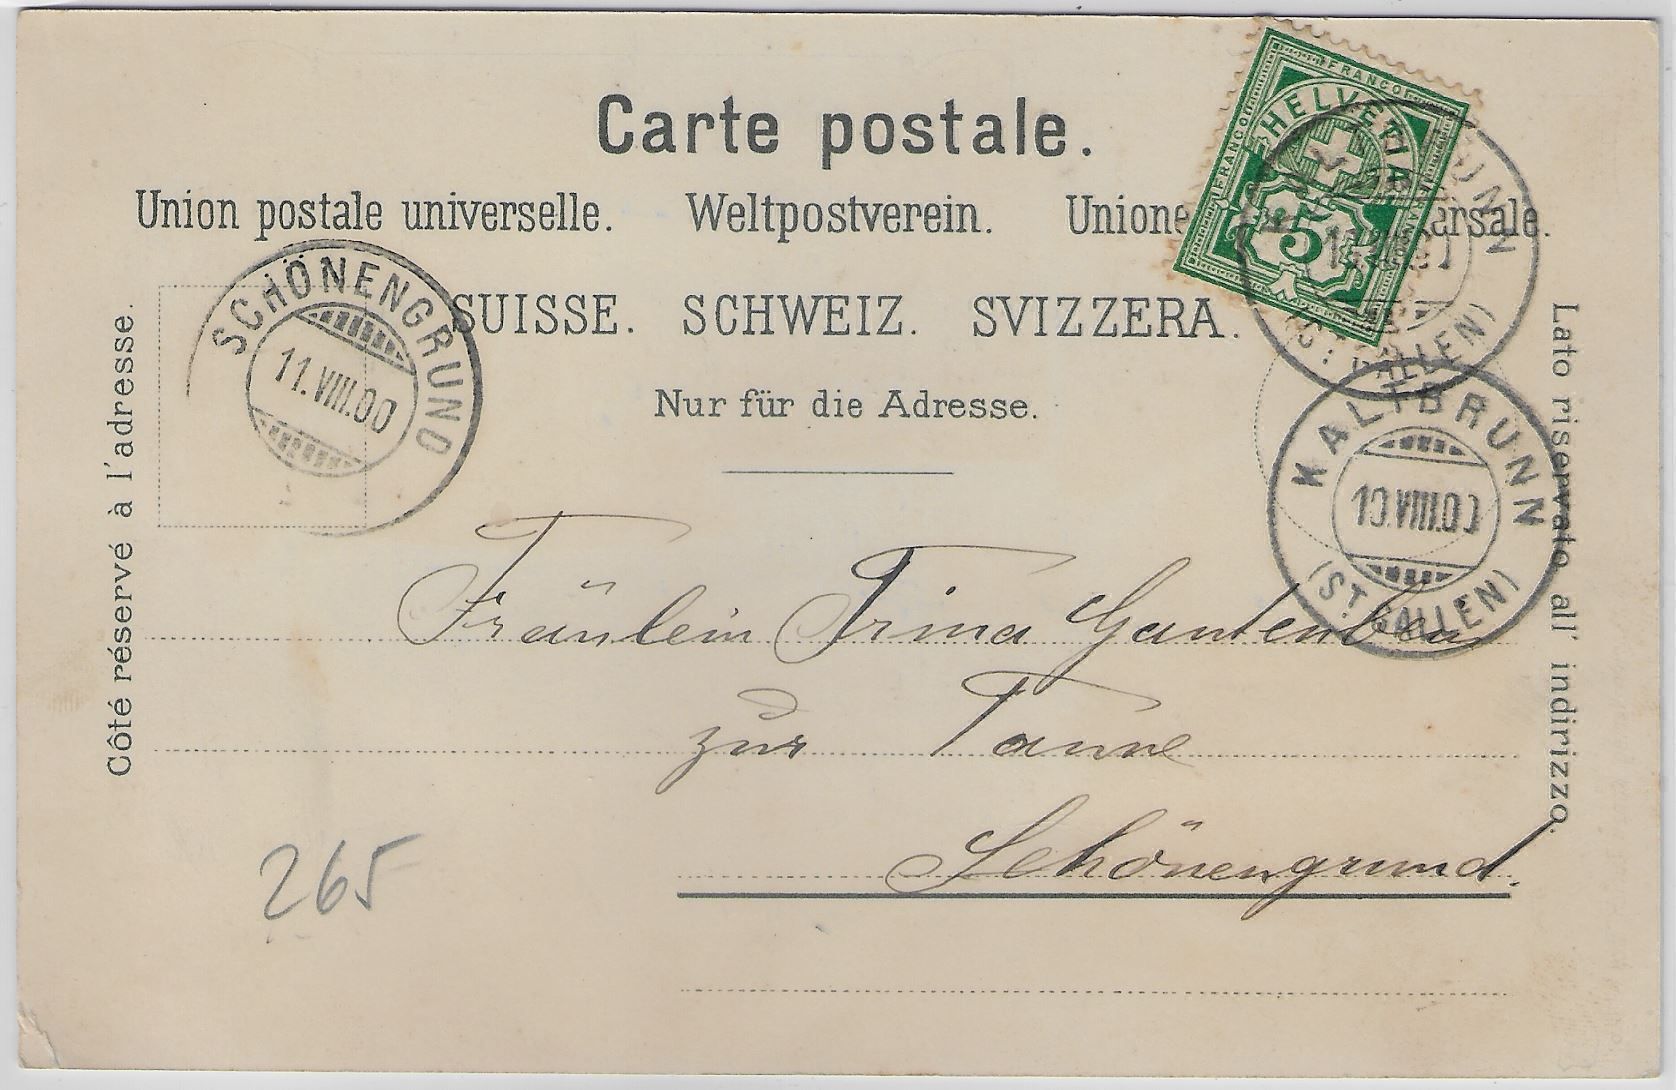 Carte postale.
Union postale universelle. Weltpostverein. Unione ersale.
SUISSE. SCHWEIZ. SVIZZERA.
Nur für die Adresse.
Côté réservé à l'adresse.
Lato riservato all' indirizzo.
FRANCO FRANCO
HELVETIA
5
SCHÖNENGRUND
11.VIII.00
KALTBRUNN
10.VIII.00
(ST. GALLEN)
(ST. GALLEN)
Fräulein Trina Gantenbein
zur Tanne
Schönengrund.
265